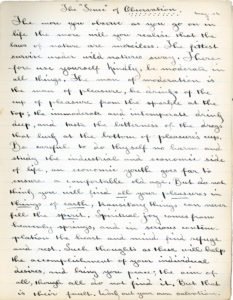 The "Sense" of Observation
The more you observe as you go on in
life the more will you realize that the
laws of nature are merciless. The fittest
survive under wild natures sway. There-
fore use yourself kindly, be moderate in
all things. The man of moderation is
the man of pleasure, he drinks of the
cup of pleasure from the sparkle at the
top; the immoderate and intemperate drink
deep and taste the bitterness of the dregs
that lurk at the bottom of pleasure's cup.
Be careful to do thyself no harm and
study the industrial and economic side
of life, an economic youth goes far to
ensure a comfortable old age. But do not
think you will find all your pleasures in
things of earth, transitory things can never
fill the spirit. Spiritual joy comes from
heavenly springs, and in serious contem-
plation the heart and mind find refuge
and rest. Such thoughts as these will help
the accomplishment of your individual
desires, and bring you peace; the aim of
all, though all do not find it. But that
is their fault. Work out your own salvation.